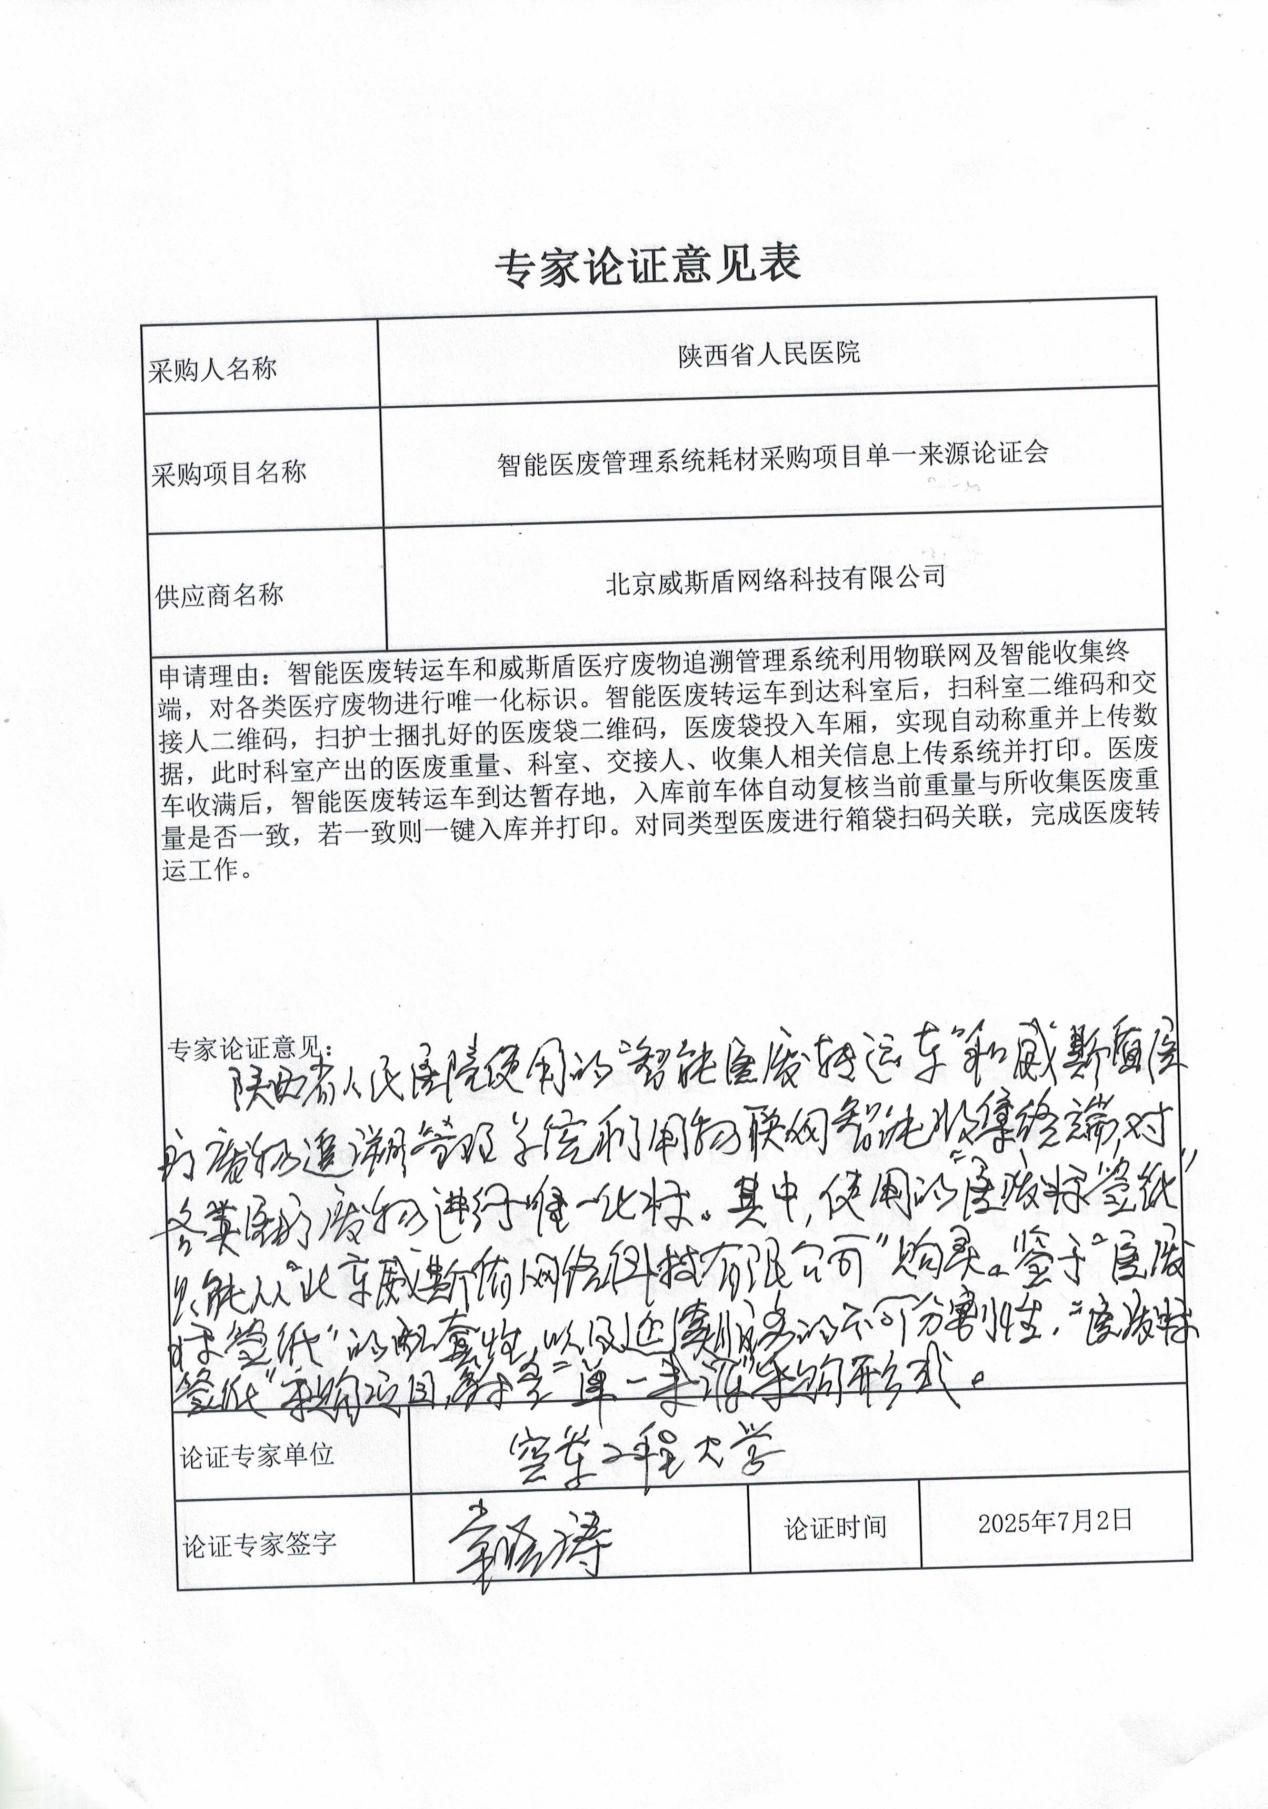 专家论证意见表
采购人名称
陕西省人民医院
采购项目名称
智能医废管理系统耗材采购项目单一来源论证会
供应商名称
北京威斯盾网络科技有限公司
申请理由：智能医废转运车和威斯盾医疗废物追溯管理系统利用物联网及智能收集终
端，对各类医疗废物进行唯一化标识。智能医废转运车到达科室后，扫科室二维码和交
接人二维码，扫护士捆扎好的医废袋二维码，医废袋投入车厢，实现自动称重并上传数
据，此时科室产出的医废重量、科室、交接人、收集人相关信息上传系统并打印。医废
车收满后，智能医废转运车到达暂存地，入库前车体自动复核当前重量与所收集医废重
量是否一致，若一致则一键入库并打印。对同类型医废进行箱袋扫码关联，完成医废转
运工作。
专家论证意见：
陕西省人民医院使用的"智能医废转运车"和威斯盾医
疗废物追溯管理系统利用物联网智能收集终端，对
各类医疗废物进行唯一化标。其中，使用的"医废标签纸"
只能从"北京威斯盾网络科技有限公司"购买。鉴于"医废
标签纸"的配套性，以及延续服务的不可分割性，"医废标
签纸"采购项目，"单一来源"采购形式。
论证专家单位
空军工程大学
论证专家签字
论证时间
2025年7月2日